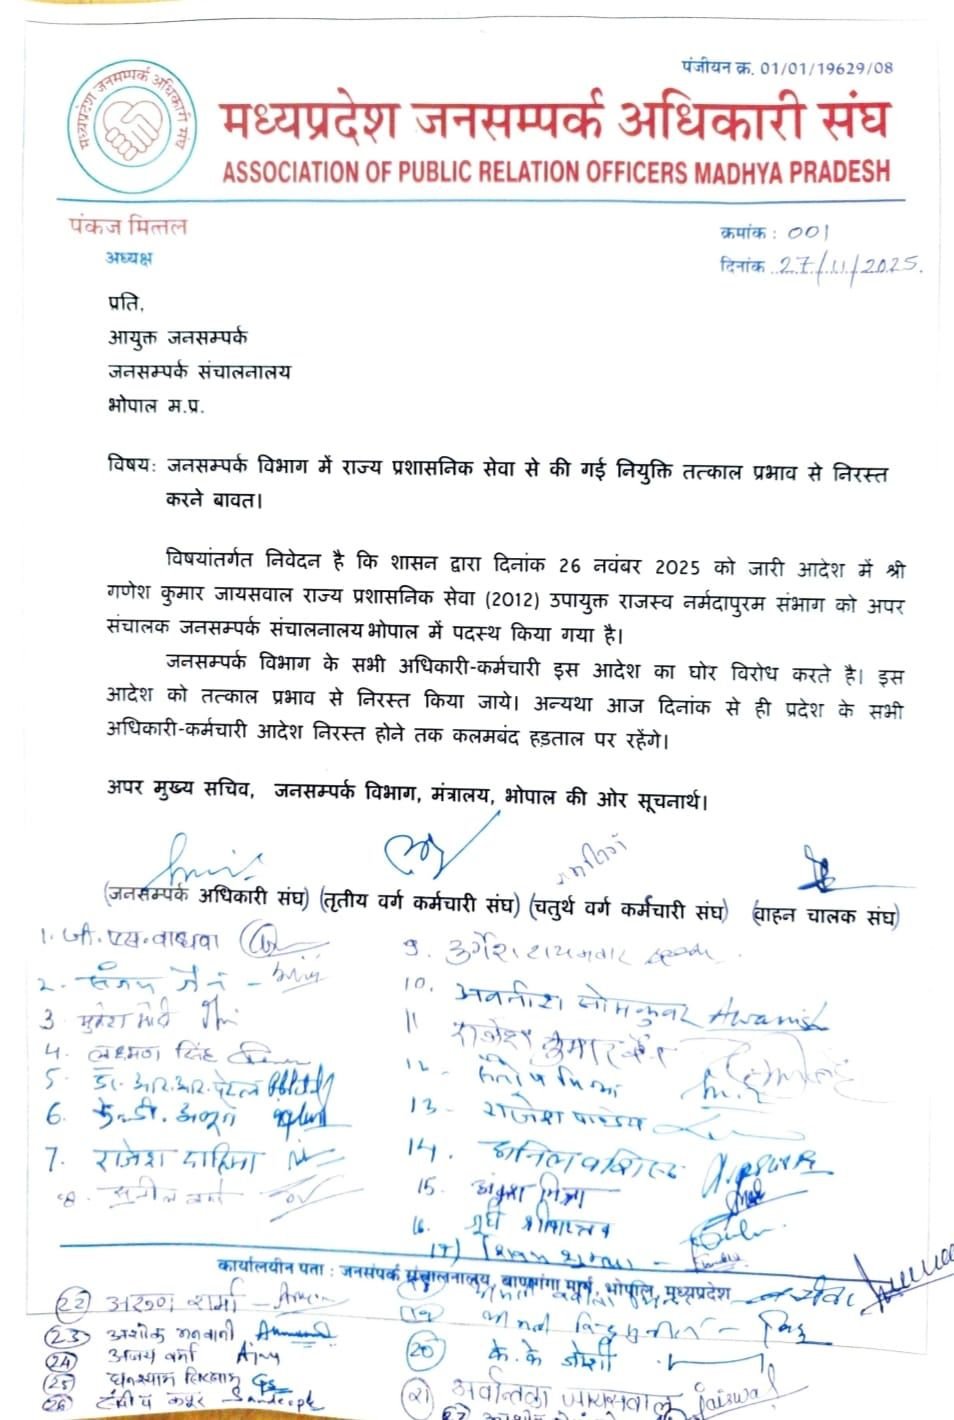 पंजीयन क्र. 01/01/19629/08
मध्यप्रदेश जनसम्पर्क अधिकारी संघ
मध्यप्रदेश जनसम्पर्क अधिकारी संघ
ASSOCIATION OF PUBLIC RELATION OFFICERS MADHYA PRADESH
पंकज मित्तल
अध्यक्ष
क्रमांक : 001
दिनांक 27/11/2025.
प्रति,
आयुक्त जनसम्पर्क
जनसम्पर्क संचालनालय
भोपाल म.प्र.
विषय: जनसम्पर्क विभाग में राज्य प्रशासनिक सेवा से की गई नियुक्ति तत्काल प्रभाव से निरस्त
करने बावत।
विषयांतर्गत निवेदन है कि शासन द्वारा दिनांक 26 नवंबर 2025 को जारी आदेश में श्री
गणेश कुमार जायसवाल राज्य प्रशासनिक सेवा (2012) उपायुक्त राजस्व नर्मदापुरम संभाग को अपर
संचालक जनसम्पर्क संचालनालय भोपाल में पदस्थ किया गया है।
जनसम्पर्क विभाग के सभी अधिकारी-कर्मचारी इस आदेश का घोर विरोध करते है। इस
आदेश को तत्काल प्रभाव से निरस्त किया जाये। अन्यथा आज दिनांक से ही प्रदेश के सभी
अधिकारी-कर्मचारी आदेश निरस्त होने तक कलमबंद हड़ताल पर रहेंगे।
अपर मुख्य सचिव, जनसम्पर्क विभाग, मंत्रालय, भोपाल की ओर सूचनार्थ।
(जनसम्पर्क अधिकारी संघ) (तृतीय वर्ग कर्मचारी संघ) (चतुर्थ वर्ग कर्मचारी संघ) (वाहन चालक संघ)
1. जी. एस. वाधवा
2. संजय जैन
3. मुकेश मोदी
4. लक्ष्मण सिंह
5. डॉ. आर. आर. पटेल
6.
7. राजेश दाहिमा
8. सुनील वर्मा
9.
10. अवनीश सोमकुवर Awanish
11 राजेश कुमार
12. संतोष मिश्रा
13- राजेश पाण्डेय
14. अनिल वशिष्ठ
15. अंकुश मिश्रा
16.
17)
कार्यालयीन पता : जनसंपर्क संचालनालय, बाणगंगा मार्ग, भोपाल, मध्यप्रदेश
19
20 के. के जोशी
21 अवन्तिका जायसवाल Jaiswal
22 अरुण शर्मा
23 अशोक मनवानी
24 अजय वर्मा Ajay
25 घनश्याम
26 संदीप कपूर Sandeep